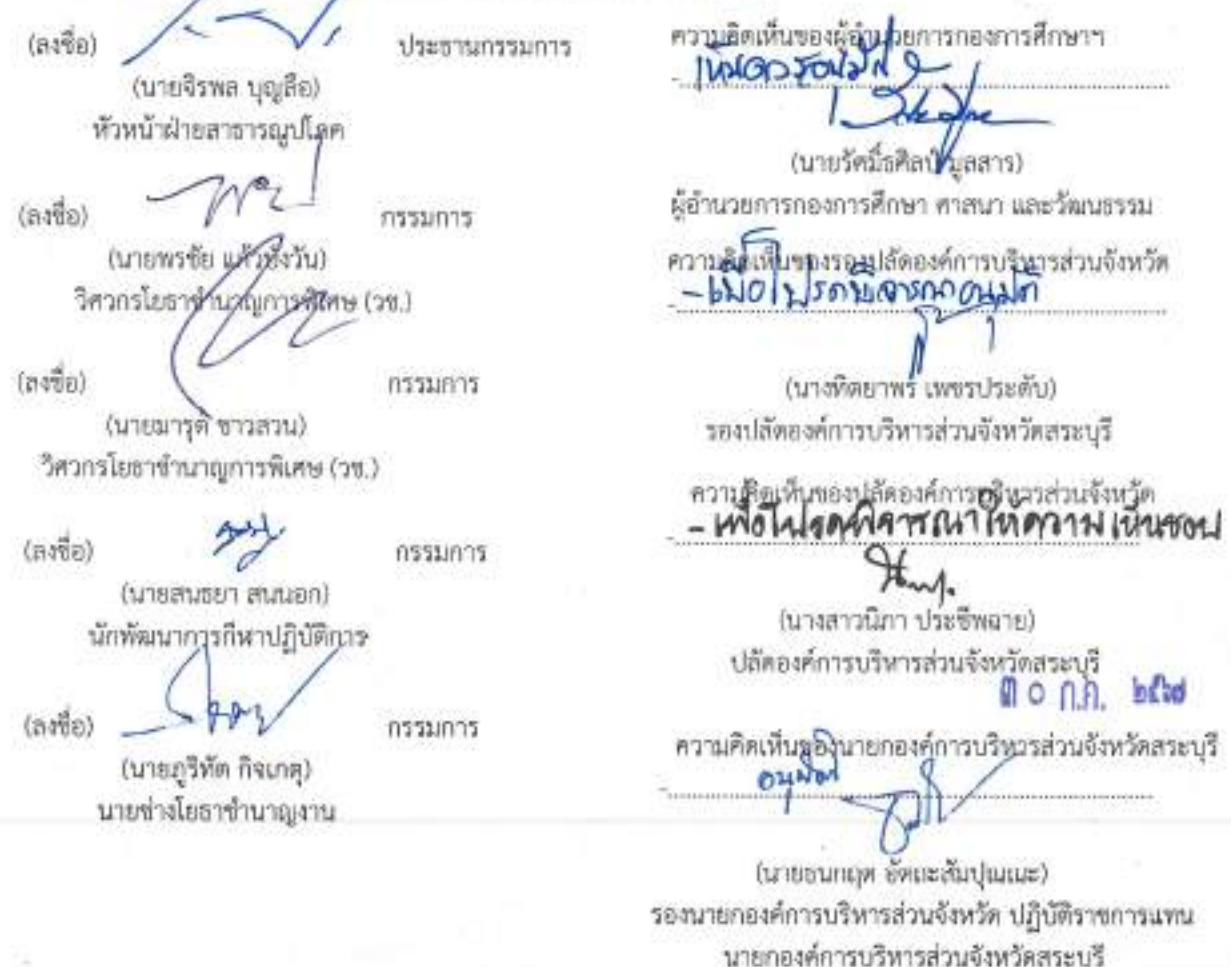 (ลงชื่อ) ประธานกรรมการ
(นายจิรพล บุญลือ)
หัวหน้าฝ่ายสาธารณูปโภค
(ลงชื่อ) กรรมการ
(นายพรชัย แก้วขังวัน)
วิศวกรโยธาชำนาญการพิเศษ (วช.)
(ลงชื่อ) กรรมการ
(นายมารุต ชาวสวน)
วิศวกรโยธาชำนาญการพิเศษ (วช.)
(ลงชื่อ) กรรมการ
(นายสนธยา สนนอก)
นักพัฒนาการกีฬาปฏิบัติการ
(ลงชื่อ) กรรมการ
(นายภูริทัต กิจเกตุ)
นายช่างโยธาชำนาญงาน
ความคิดเห็นของผู้อำนวยการกองการศึกษาฯ
เห็นควรอนุมัติ
(นายรัศมิ์ธศิลป์ มูลสาร)
ผู้อำนวยการกองการศึกษา ศาสนา และวัฒนธรรม
ความคิดเห็นของรองปลัดองค์การบริหารส่วนจังหวัด
- เพื่อโปรดพิจารณาอนุมัติ
(นางทิตยาพร เพชรประดับ)
รองปลัดองค์การบริหารส่วนจังหวัดสระบุรี
ความคิดเห็นของปลัดองค์การบริหารส่วนจังหวัด
- เพื่อโปรดพิจารณาให้ความเห็นชอบ
(นางสาวนิภา ประชีพฉาย)
ปลัดองค์การบริหารส่วนจังหวัดสระบุรี
๓๐ ก.ค. ๒๕๖๗
ความคิดเห็นของนายกองค์การบริหารส่วนจังหวัดสระบุรี
อนุมัติ
(นายธนกฤต อัตถะสัมปุณณะ)
รองนายกองค์การบริหารส่วนจังหวัด ปฏิบัติราชการแทน
นายกองค์การบริหารส่วนจังหวัดสระบุรี